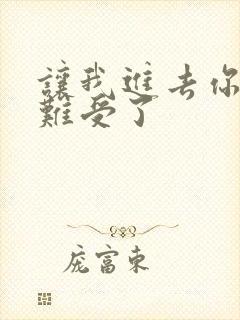 讓我進去你
難受了
庞富東